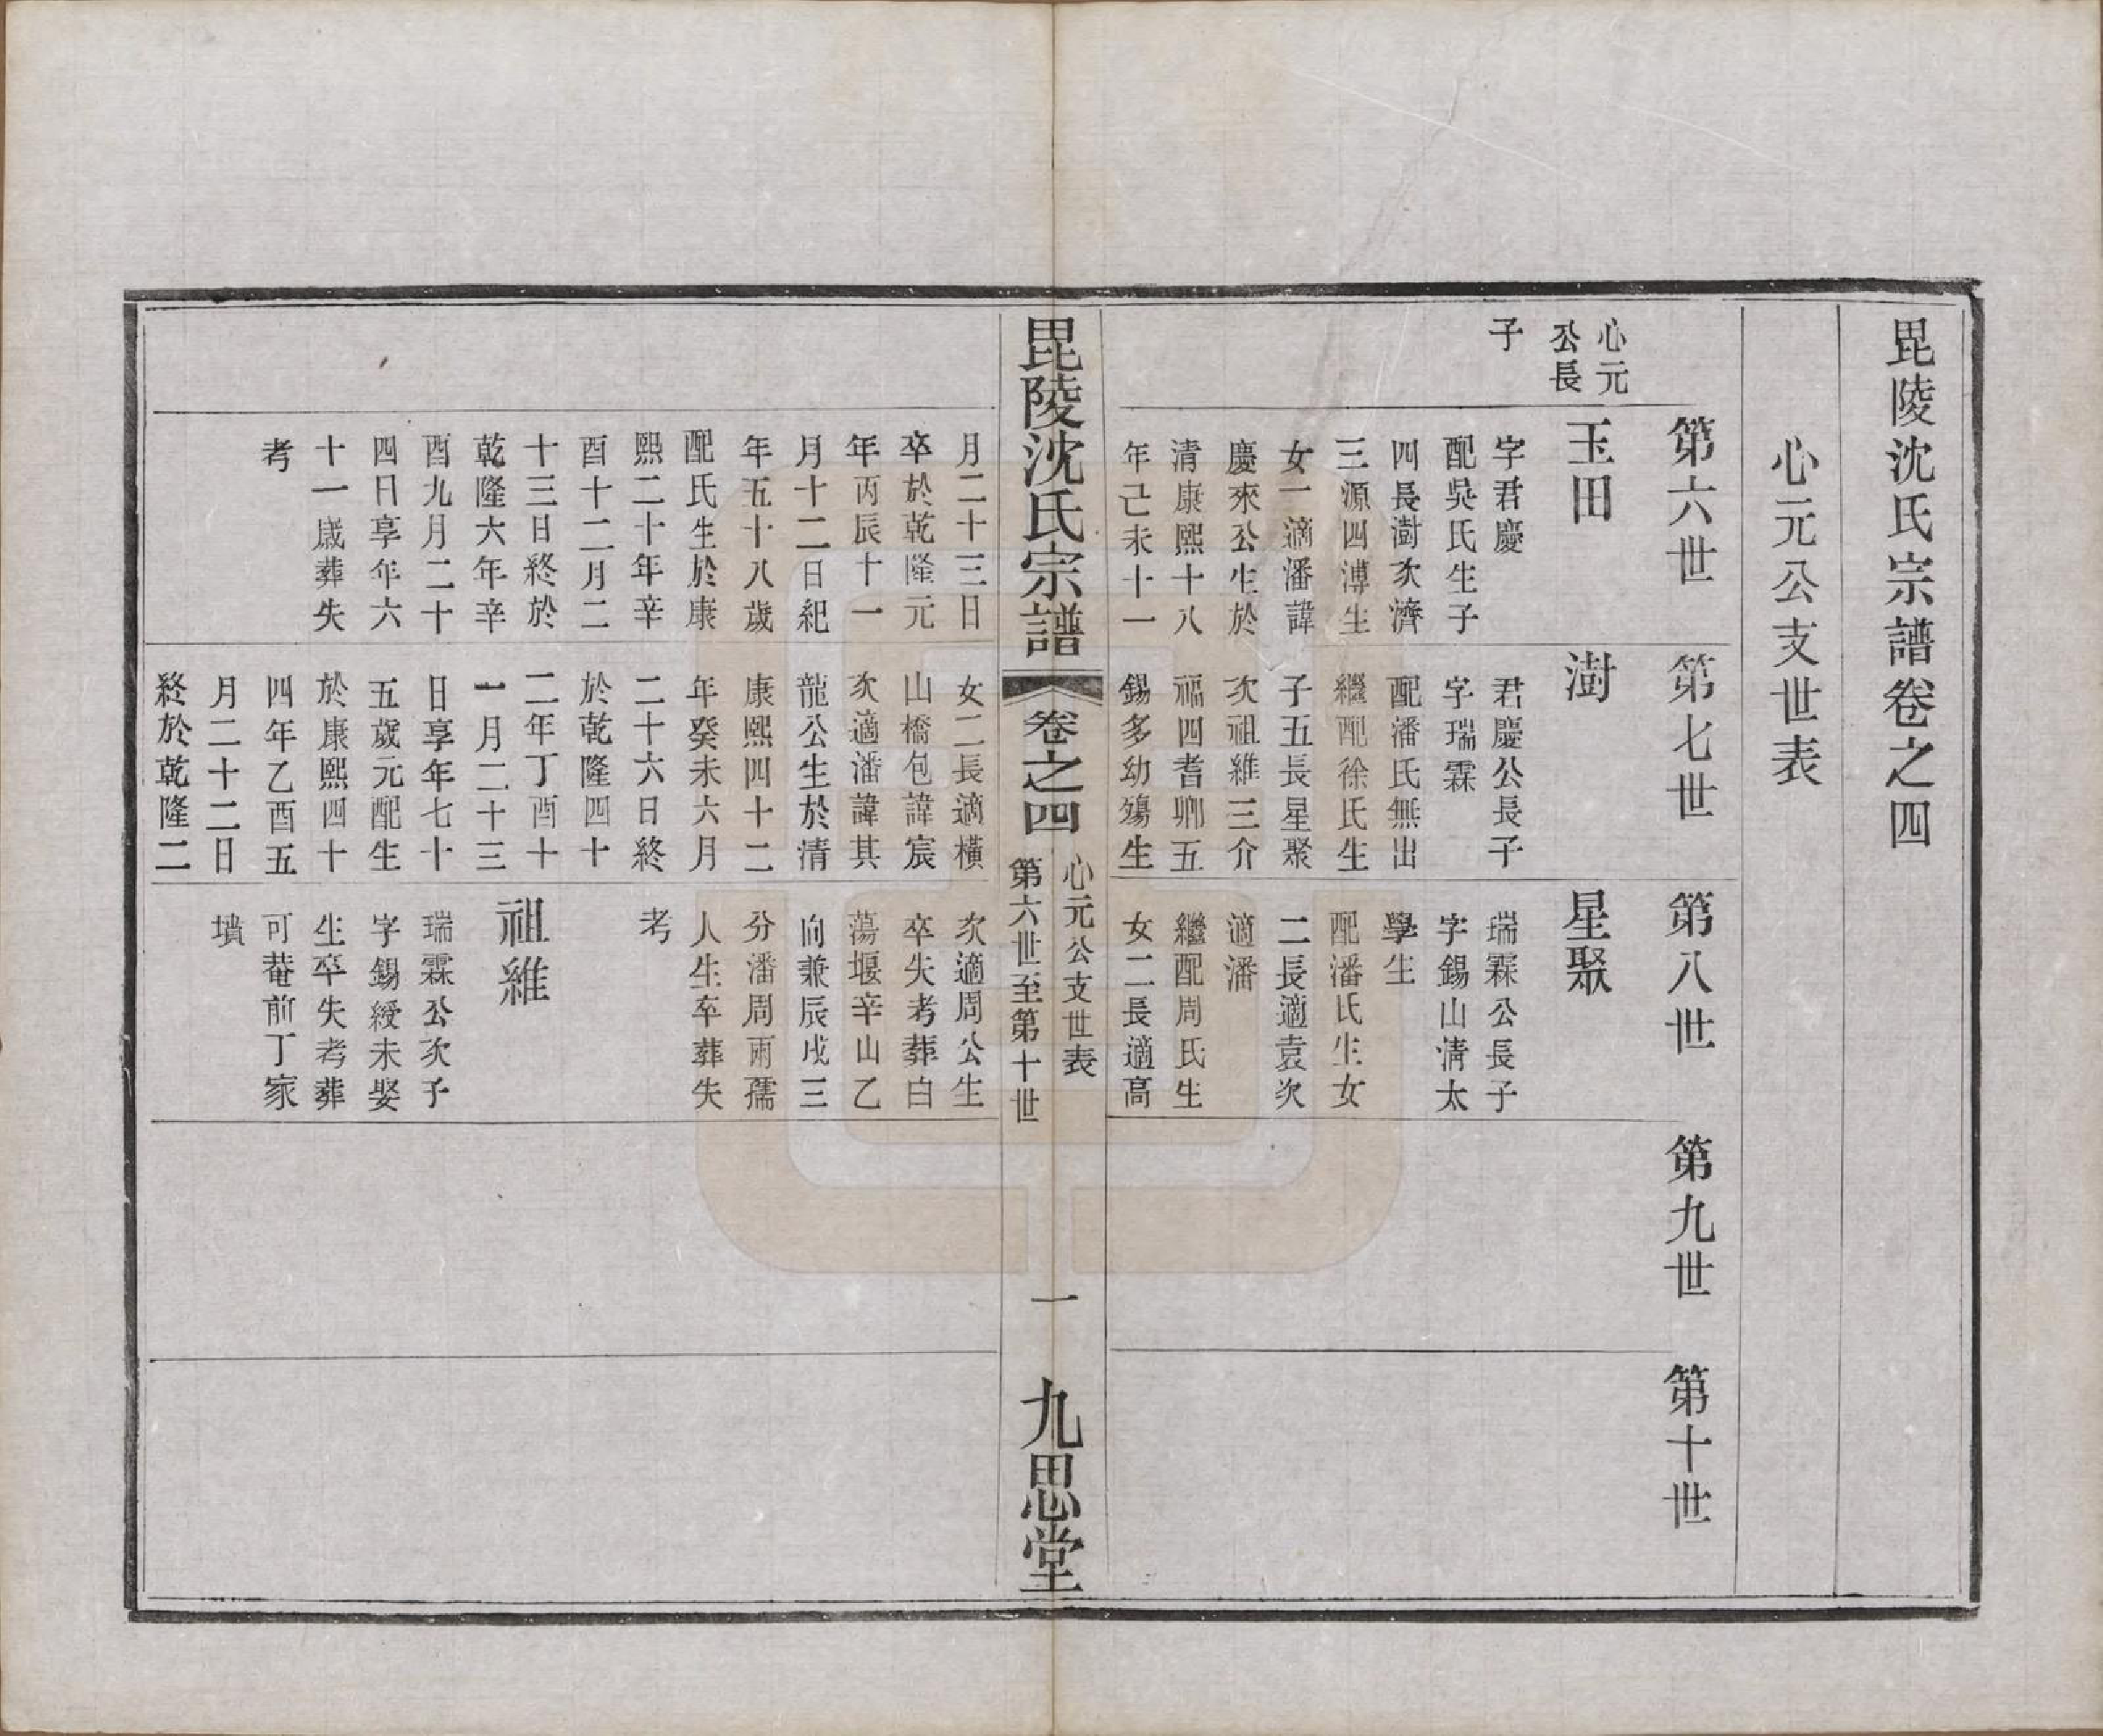 毘陵沈氏宗譜卷之四
心元公支世表
第六世
第七世
第八世
第九世
第十世
心元
公長
子
玉田
字君慶
配吳氏生子
四長澍次濟
三源四溥生
女一適潘諱
慶來公生於
清康熙十八
年己未十一
月二十三日
卒於乾隆元
年丙辰十一
月十二日紀
年五十八歲
配氏生於康
熙二十年辛
酉十二月二
十三日終於
乾隆六年辛
酉九月二十
四日享年六
十一歲葬失
考
澍
君慶公長子
字瑞霖
配潘氏無出
繼配徐氏生
子五長星聚
次祖維三介
福四耆卿五
錫多幼殤生
女二長適橫
山橋包諱宸
次適潘諱其
龍公生於清
康熙四十二
年癸未六月
二十六日終
於乾隆四十
二年丁酉十
一月二十三
日享年七十
五歲元配生
於康熙四十
四年乙酉五
月二十二日
終於乾隆二
星聚
瑞霖公長子
字錫山清太
學生
配潘氏生女
二長適袁次
適潘
繼配周氏生
女二長適高
次適周公生
卒失考葬白
蕩堰辛山乙
向兼辰戌三
分潘周兩孺
人生卒葬失
考
祖維
瑞霖公次子
字錫綬未娶
生卒失考葬
可菴前丁家
墳
毘陵沈氏宗譜
卷之四
心元公支世表
第六世至第十世
一
九思堂